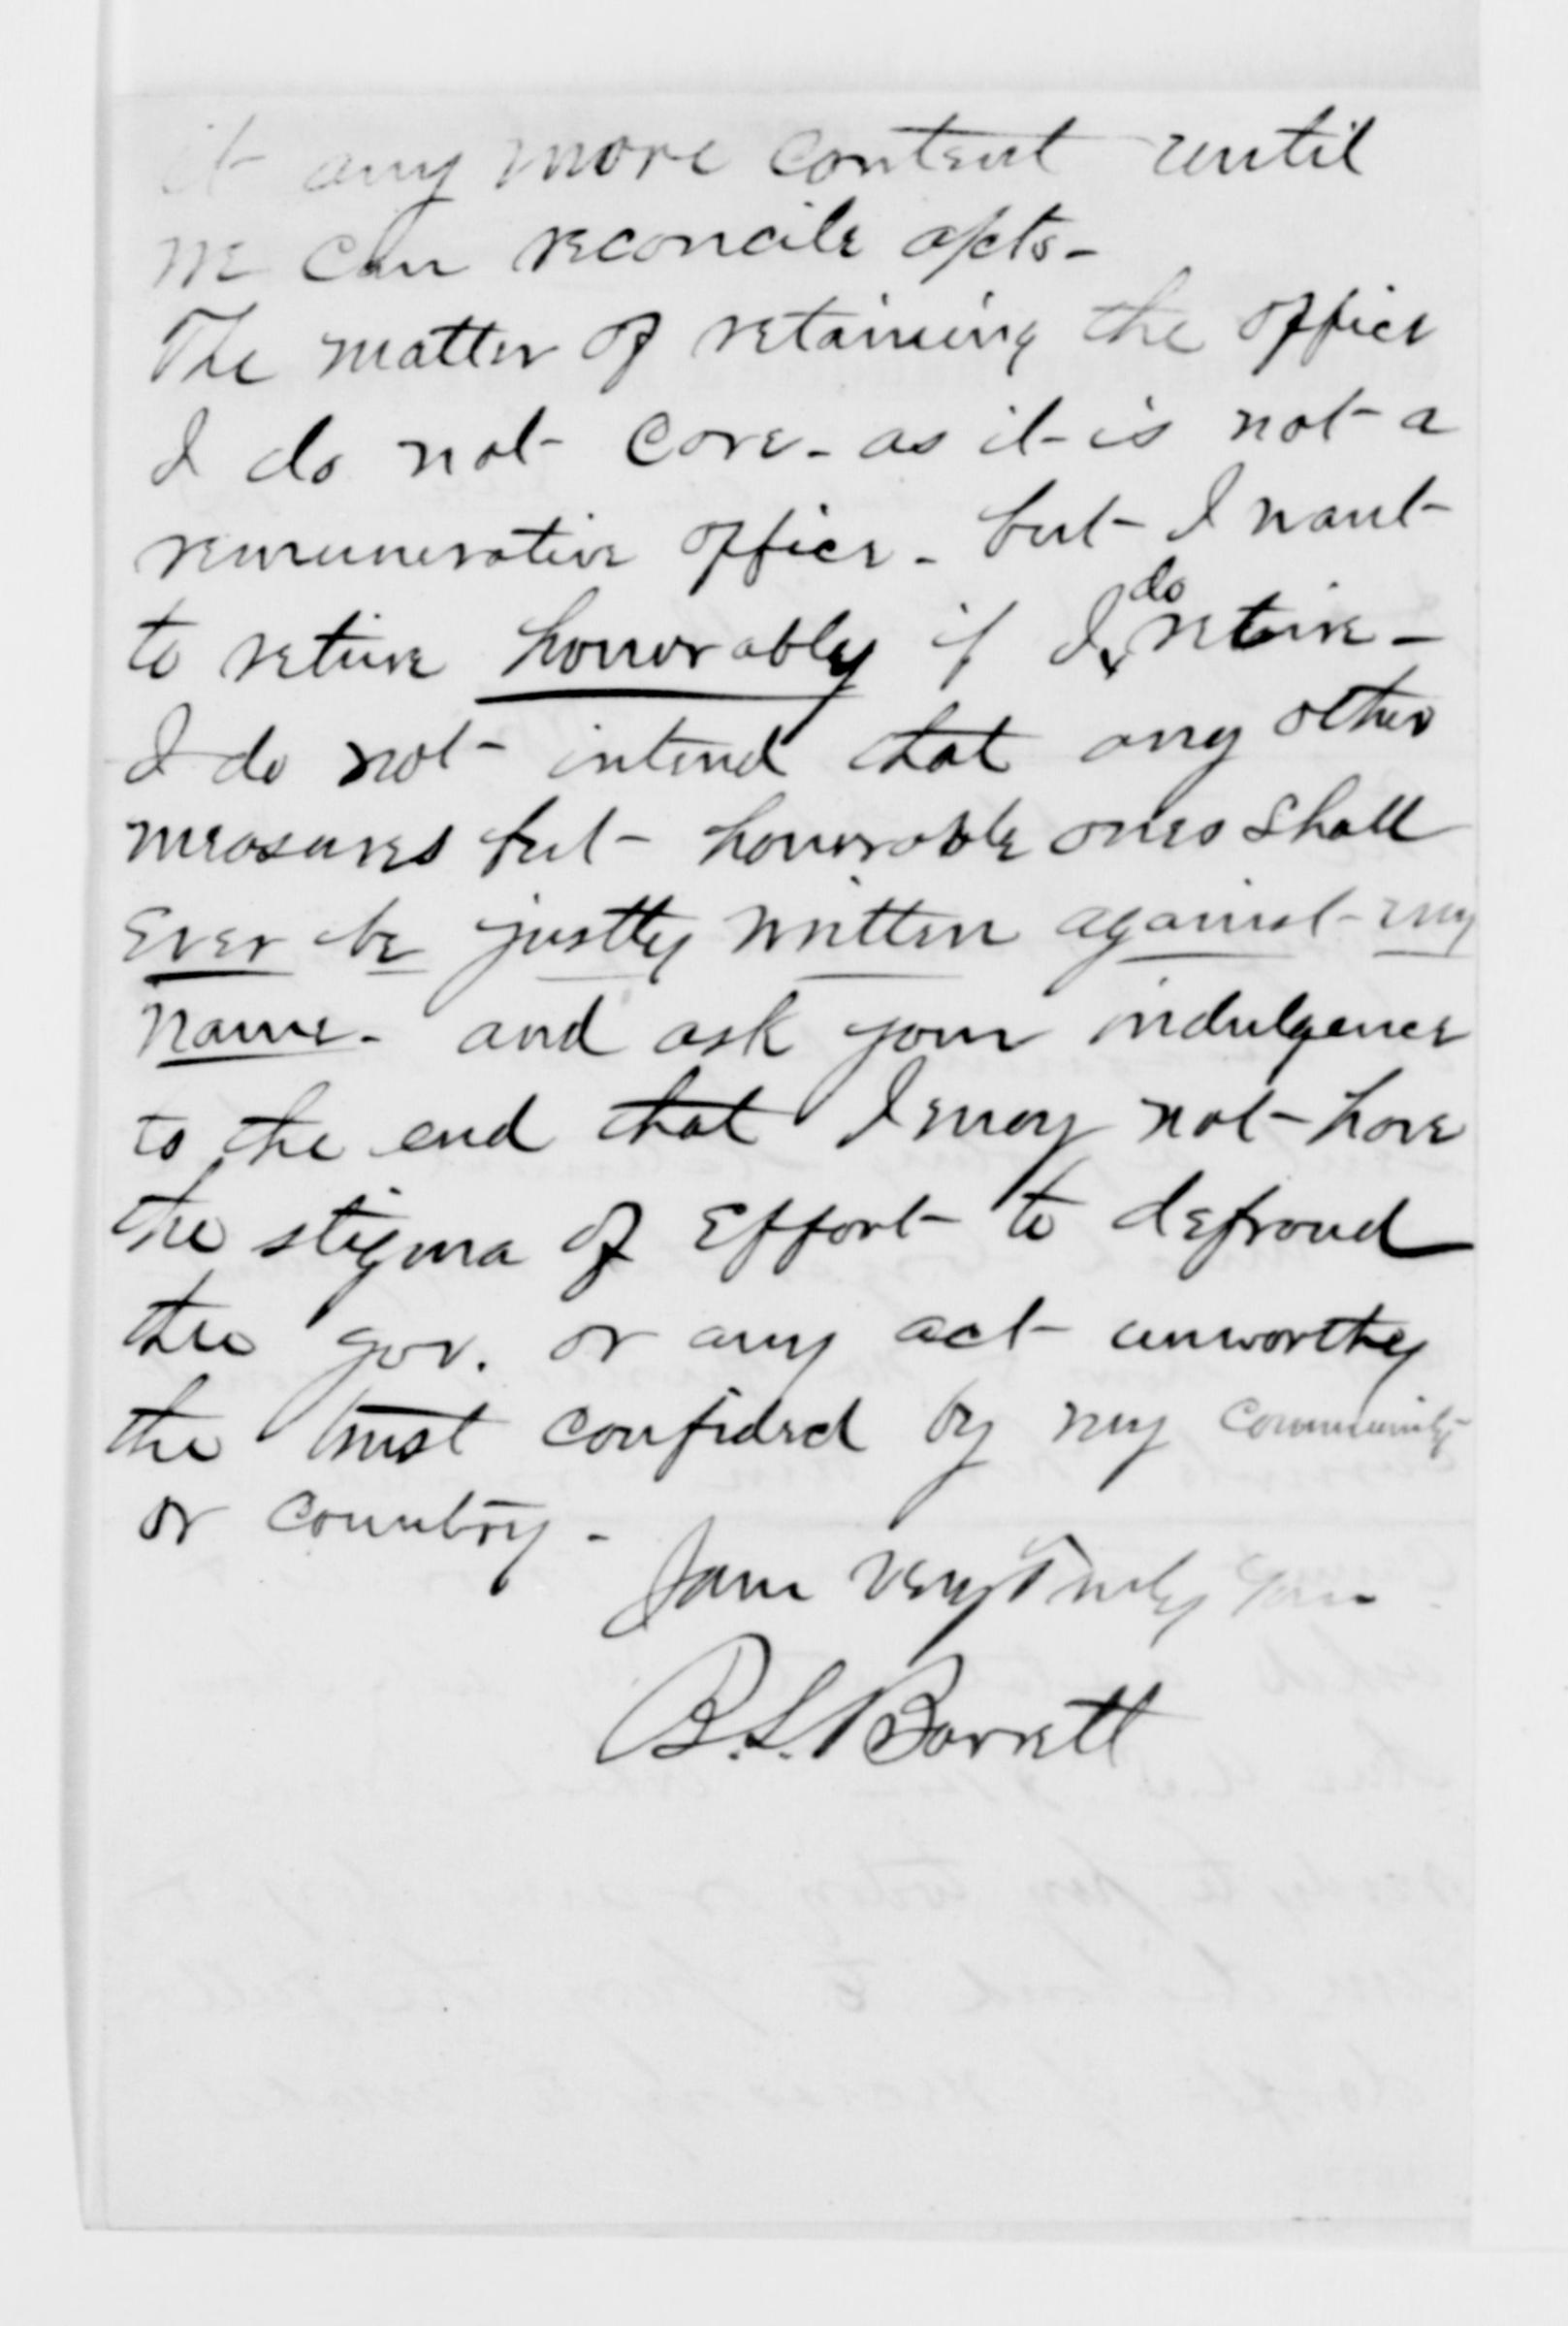 it any more content until
we can reconcile apts-
The matter of retaining the office
I do not care - as it is not a
remunerative office - but I want
to retire honorably if I do retire -
I do not intend that any other
measures but honorable ones shall
ever be justly written against my
name - and ask your indulgence
to the end that I may not have
the stigma of effort to defraud
the gov. or any act unworthy
the trust confided by my community
or country -
I am very Truly Yours
B. S. Barrett